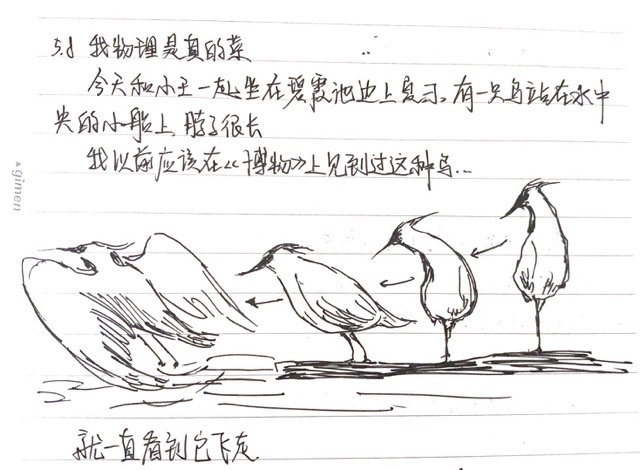 5.8 我物理是真的菜
今天和小王一起坐在碧霞池边上复习,有一只鸟站在水中
央的小船上 脖子很长
我以前应该在《博物》上见到过这种鸟...
就一直看到它飞走
gimen